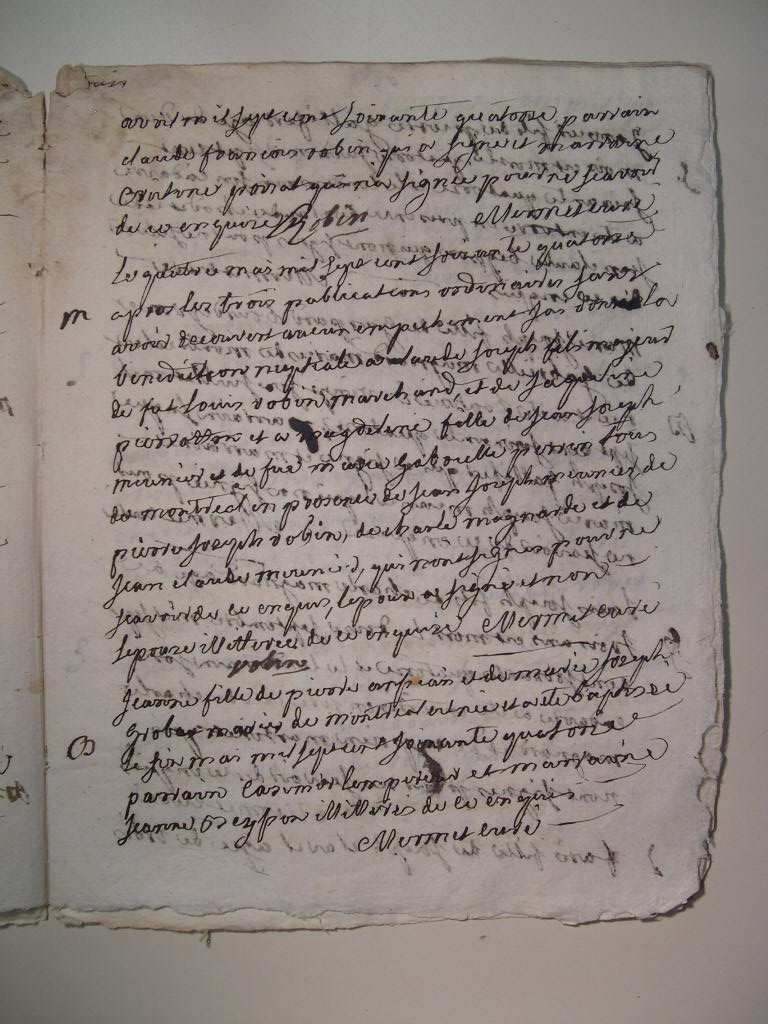 avril mil sept cent soixante quatorse parrain
claude francois robin qui a signé et marraine
poirat qui n'a signée pour ne scavoir
de ce enquise Robin Mermet curé
Le quatre mai mil sept cent soixante quatorse
m
apres les trois publications ordinaires sans
avoir decouvert aucun empechement j'ai donné la
benediction nuptiale a claude joseph fils majeur
de fut Louis robin marchand, et de jaqueline
et a magdeleine fille de jean joseph
meunier et de fue marie gabrielle perren tous
de montreal en presence de jean joseph meunier de
pierre joseph robin, de charle magnarde et de
jean claude meunier, qui n'ont signés pour ne
scavoir de ce enquis, l'epoux a signé et non
l'epouze illitterée de ce enquize Mermet curé
robin
jeanne fille de pierre et de marie joseph
grobas mariés de montreal est née et a eté baptisée
B
le six mai mil sept cent soixante quatorse
parrain Casimir Lempereur et marraine
jeanne illiteris de ce enquis
Mermet curé